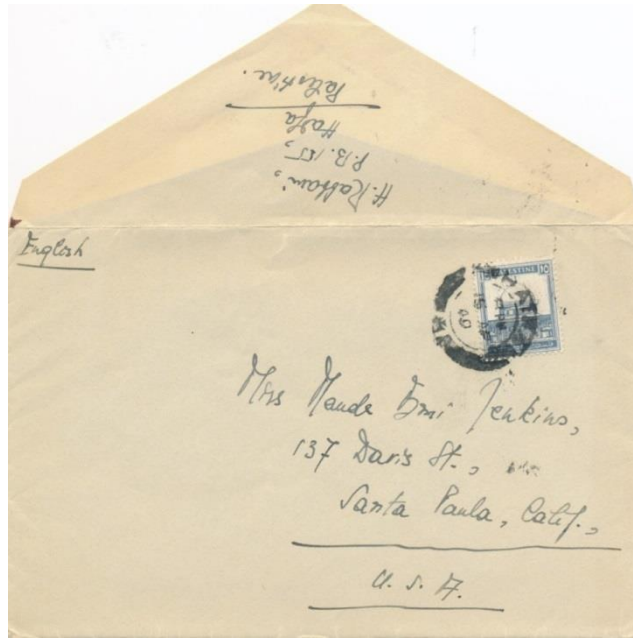 H. Rabbani,
P.B. 155,
Haifa
Palestine.
English
PALESTINE
10
Mrs Maude Jenkins,
137 Davis St.,
Santa Paula, Calif.,
U.S.A.